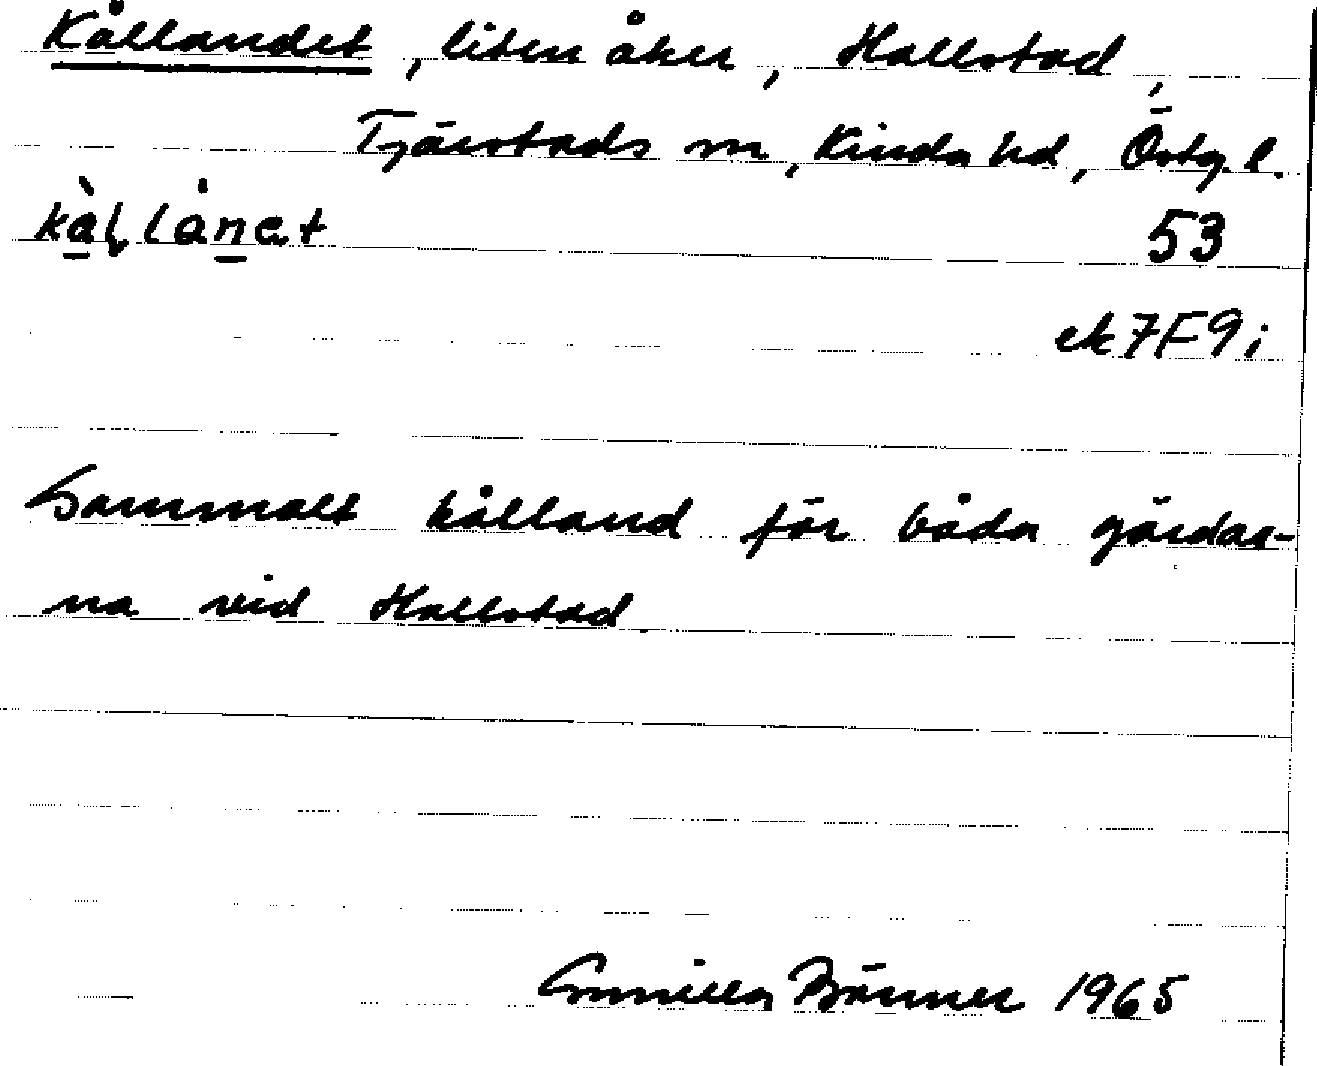 Kållandet, liten åker, Hallstad,
Tjärstads sn, Kinda hd, Östg. l.
53
ek 7F9i
Gammalt kålland för båda gårdar-
na vid Hallstad
Gunilla Bänner 1965